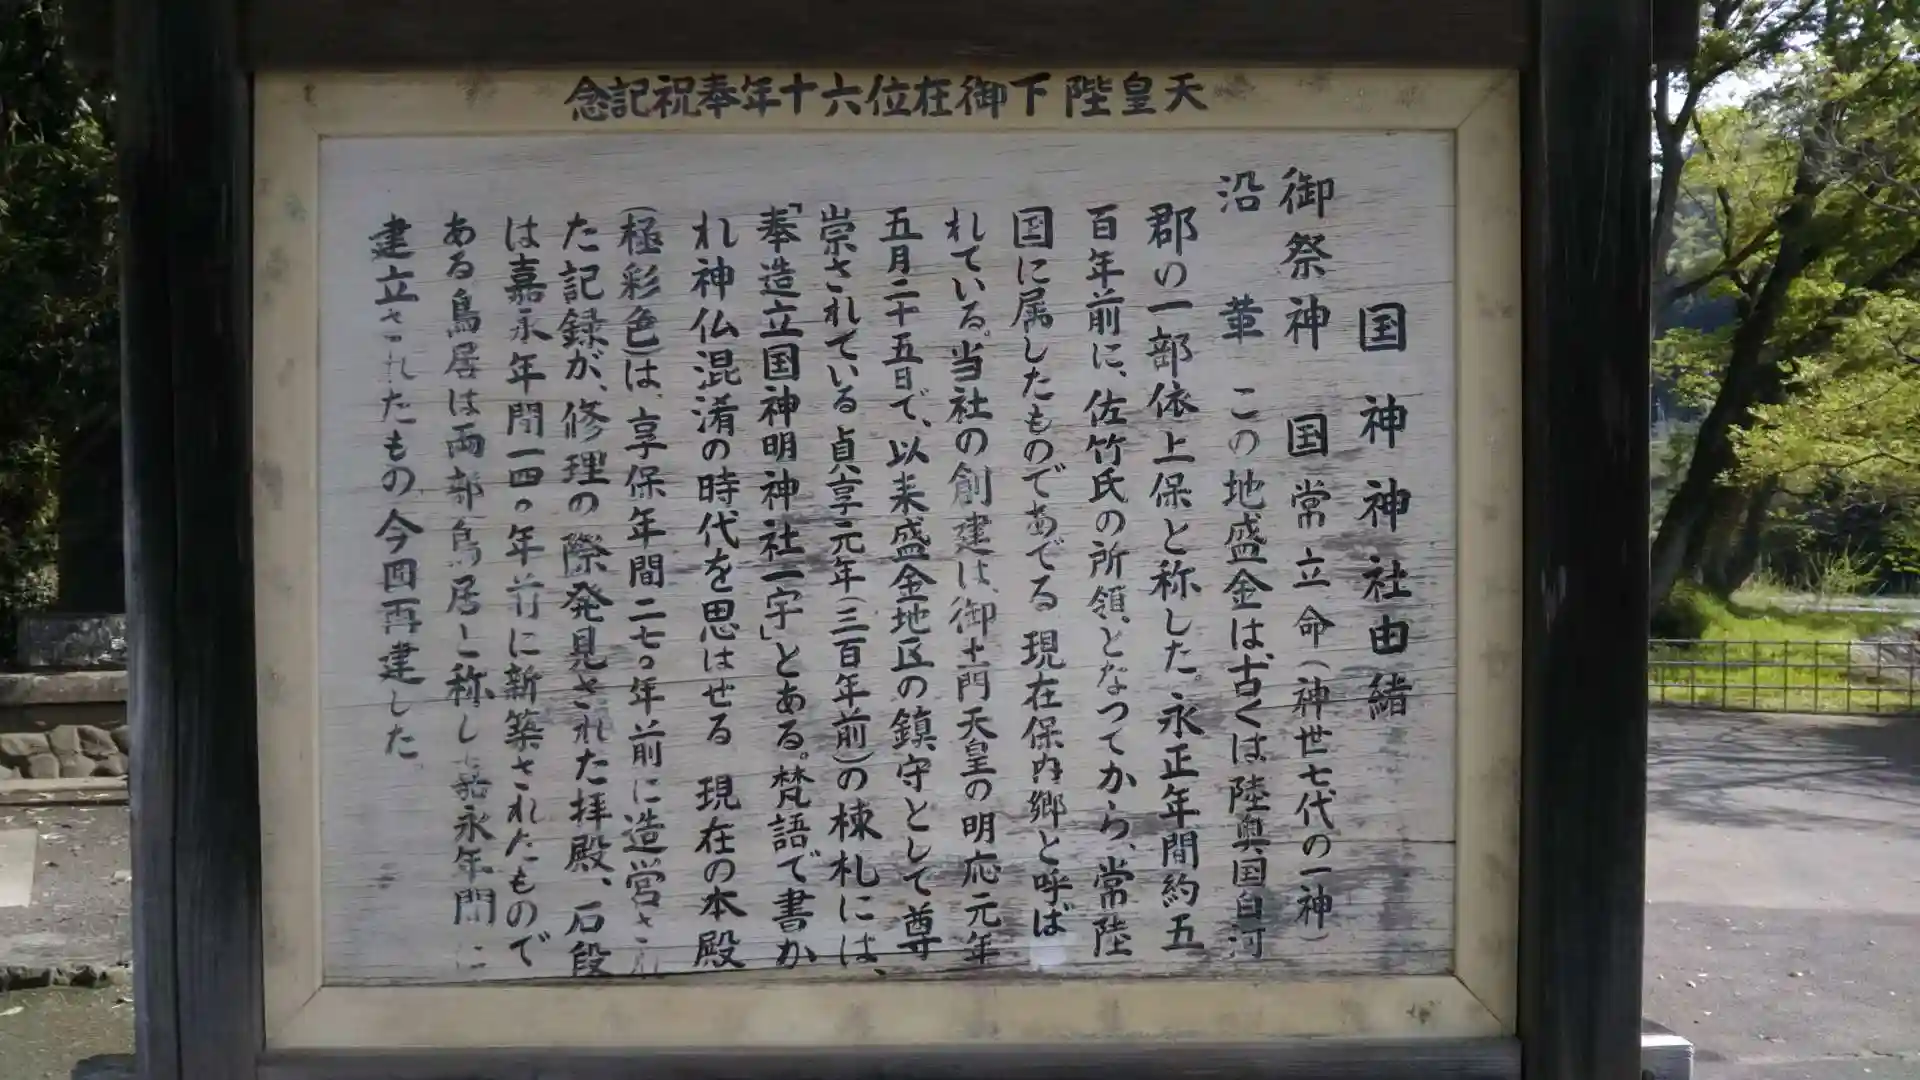 天皇陛下御在位六十年奉祝記念
国神神社由緒
御祭神 国常立命(神世七代の一神)
沿革 この地盛金は、古くは陸奥国白河
郡の一部依上保と称した。永正年間約五
百年前に、佐竹氏の所領となつてから、常陸
国に属したものであでる 現在保内郷と呼ば
れている。当社の創建は、御土門天皇の明応元年
五月二十五日で、以来盛金地区の鎮守として尊
崇されている貞享元年(三百年前)の棟札には、
「奉造立国神明神社一宇」とある。梵語で書か
れ神仏混淆の時代を思はせる 現在の本殿
(極彩色)は、享保年間二七〇年前に造営され
た記録が、修理の際発見された拝殿、石段
は嘉永年間一四〇年前に新築されたもので
ある鳥居は両部鳥居と称し嘉永年間に
建立されたもの今回再建した